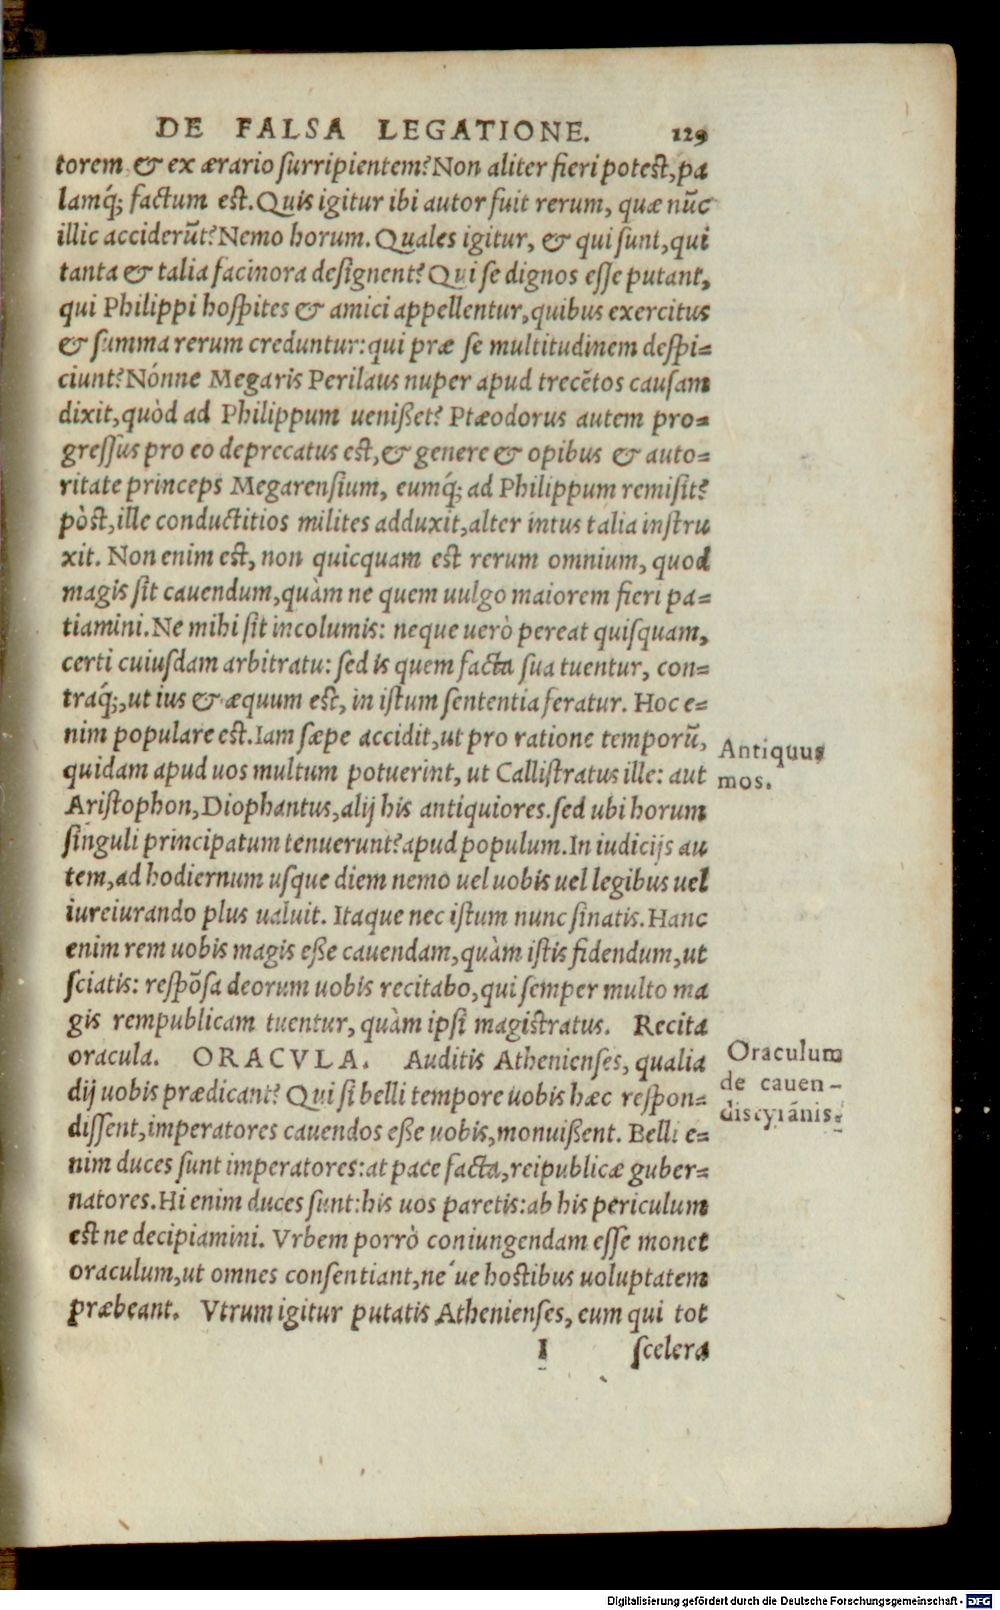 DE FALSA LEGATIONE. 129
torem & ex ærario ſurripientem? Non aliter fieri poteſt, pa
lamq́; factum eſt. Quis igitur ibi autor fuit rerum, quæ nũc
illic acciderũt? Nemo horum. Quales igitur, & qui ſunt, qui
tanta & talia facinora deſignent? Qui ſe dignos eſſe putant,
qui Philippi hoſpites & amici appellentur, quibus exercitus
& ſumma rerum creduntur: qui præ ſe multitudinem deſpi=
ciunt? Nónne Megaris Perilaus nuper apud trecẽtos cauſam
dixit, quòd ad Philippum uenißet? Ptæodorus autem pro=
greſſus pro eo deprecatus eſt, & genere & opibus & auto=
ritate princeps Megarenſium, eumq́; ad Philippum remiſit?
pòst, ille conductitios milites adduxit, alter intus talia inſtru
xit. Non enim eſt, non quicquam eſt rerum omnium, quod
magis ſit cauendum, quàm ne quem uulgo maiorem fieri pa=
tiamini. Ne mihi ſit incolumis: neque uerò pereat quiſquam,
certi cuiuſdam arbitratu: ſed is quem facta ſua tuentur, con=
traq́;, ut ius & æquum eſt, in iſtum ſententia feratur. Hoc e=
nim populare eſt. Iam ſæpe accidit, ut pro ratione temporũ,
quidam apud uos multum potuerint, ut Calliſtratus ille: aut
Ariſtophon, Diophantus, alij his antiquiores. ſed ubi horum
ſinguli principatum tenuerunt? apud populum. In iudicijs au
tem, ad hodiernum uſque diem nemo uel uobis uel legibus uel
iureiurando plus ualuit. Itaque nec iſtum nunc ſinatis. Hanc
enim rem uobis magis eße cauendam, quàm iſtis fidendum, ut
ſciatis: reſpõſa deorum uobis recitabo, qui ſemper multo ma
gis rempublicam tuentur, quàm ipſi magiſtratus. Recita
oracula. ORACVLA. Auditis Athenienſes, qualia
dij uobis prædicant? Qui ſi belli tempore uobis hæc reſpon=
diſſent, imperatores cauendos eße uobis, monuißent. Belli e=
nim duces ſunt imperatores: at pace facta, reipublicæ guber=
natores. Hi enim duces ſunt: his uos paretis: ab his periculum
eſt ne decipiamini. Vrbem porrò coniungendam eſſe monet
oraculum, ut omnes conſentiant, ne´ue hoſtibus uoluptatem
præbeant. Vtrum igitur putatis Athenienſes, eum qui tot
I ſcelera
Antiquus
mos.
Oraculum
de cauen-
dis tyrãnis.
Digitalisierung gefördert durch die Deutsche Forschungsgemeinschaft - DFG